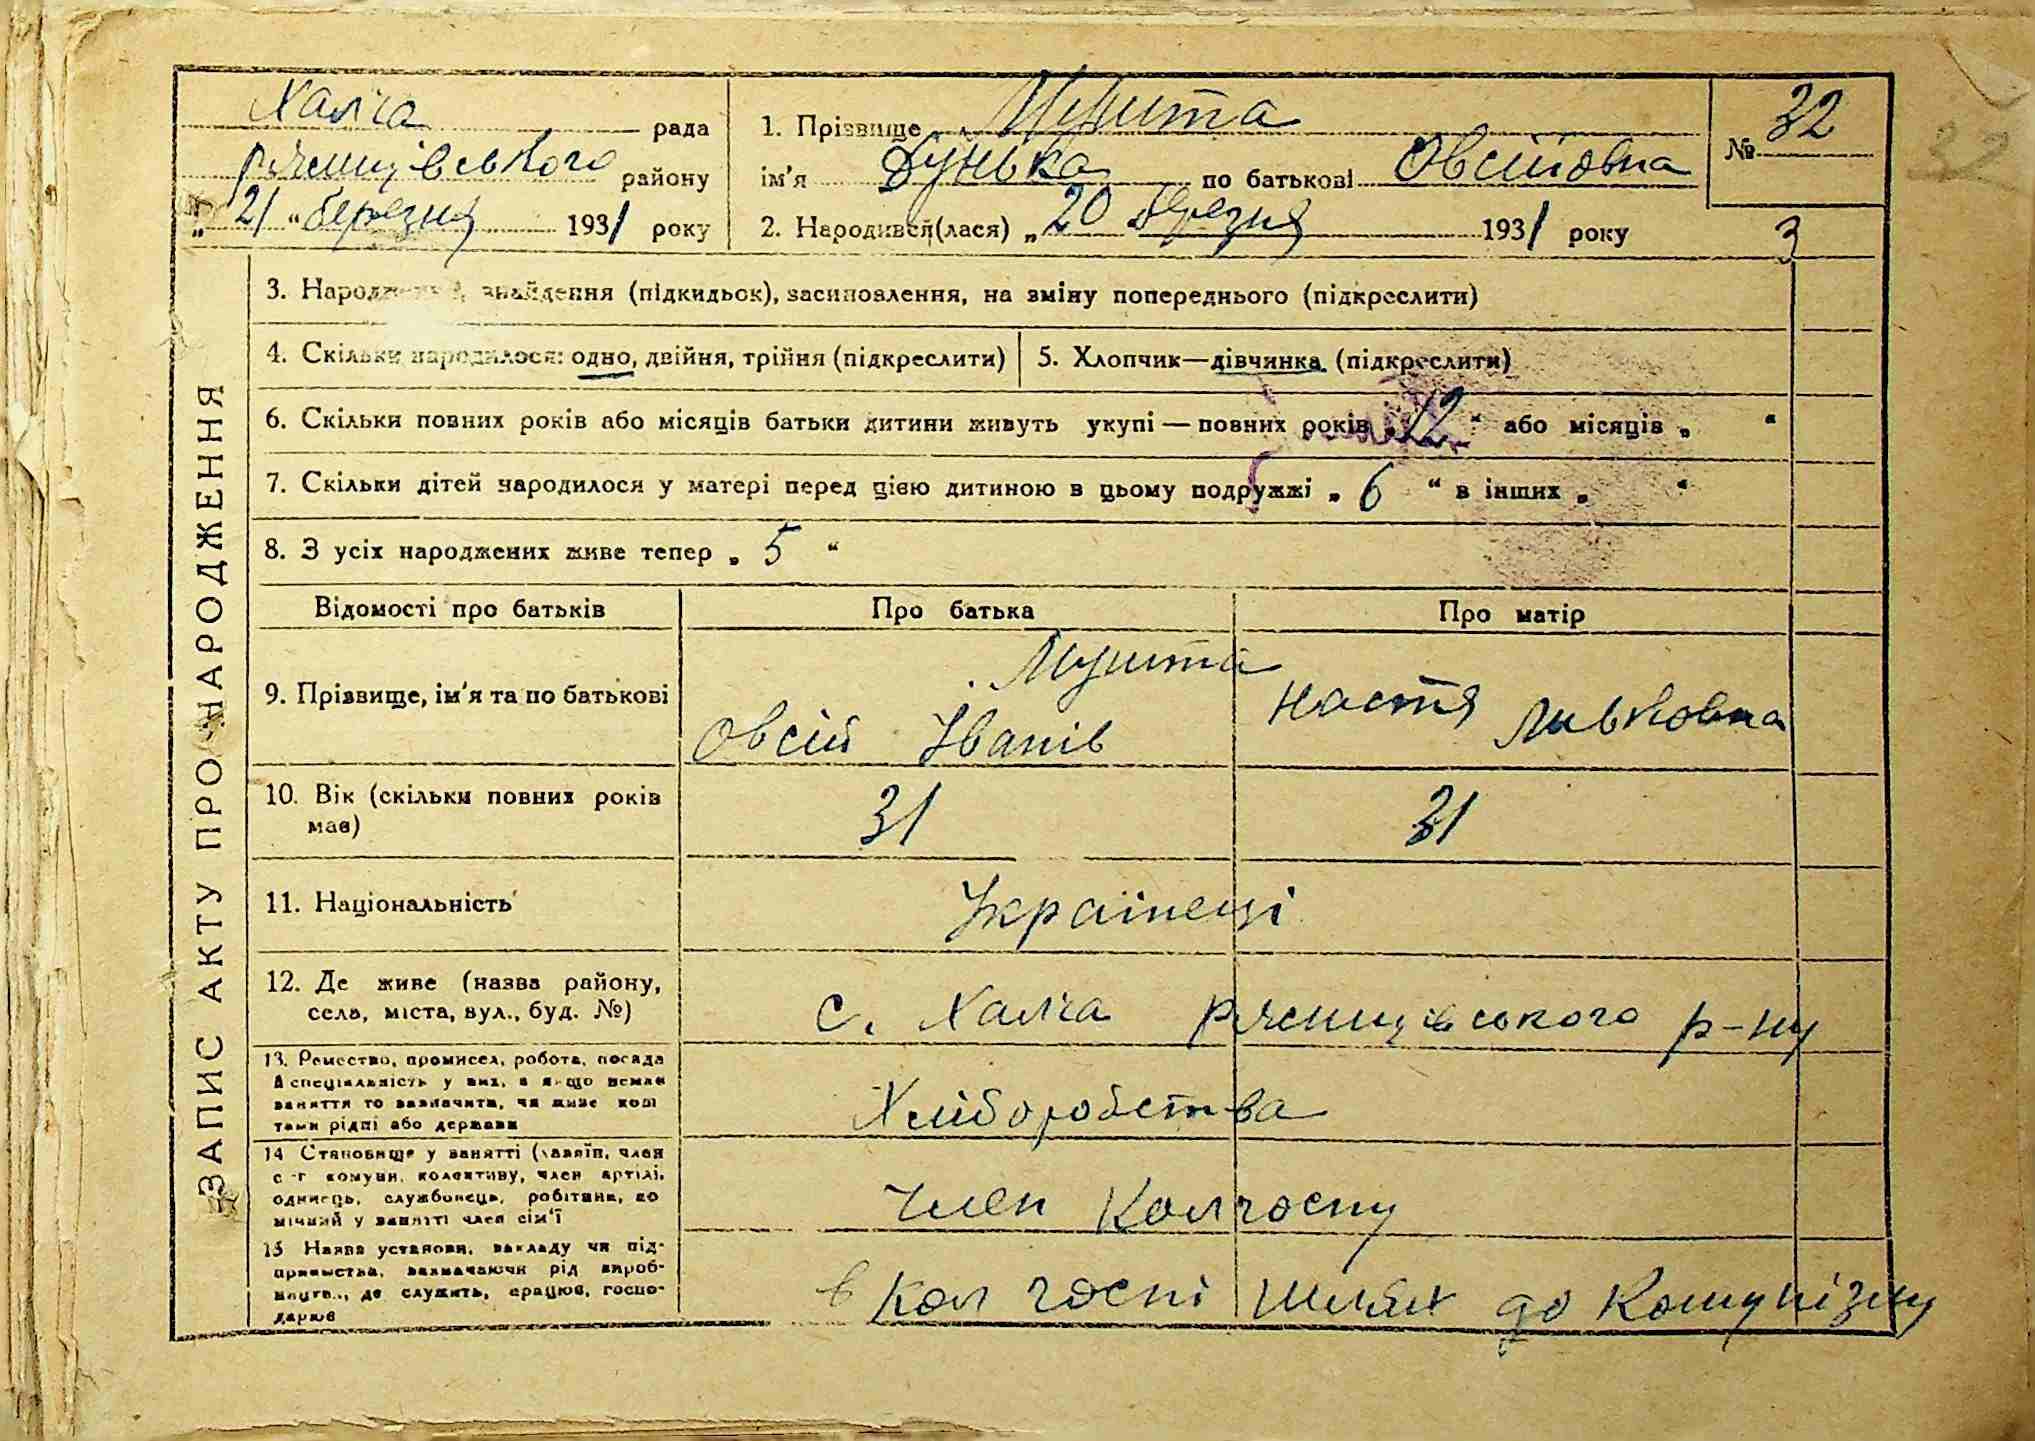 ЗАПИС АКТУ ПРО НАРОДЖЕННЯ
Халча рада
Ржищівського району
„21“ березня 1931 року
1. Прізвище Мушта
ім'я Дунька по батькові Овсіївна
2. Народився(лася) „20 березня 1931 року
№ 32
32
3
3. Народження, знайдення (підкидьок), засиновлення, на зміну попереднього (підкреслити)
4. Скільки народилося: одно, двійня, трійня (підкреслити)
5. Хлопчик—дівчинка (підкреслити)
6. Скільки повних років або місяців батьки дитини живуть укупі — повних років „12“ або місяців „ “
7. Скільки дітей народилося у матері перед цією дитиною в цьому подружжі „ 6 “ в інших „ “
8. З усіх народжених живе тепер „ 5 “
Відомості про батьків
Про батька
Про матір
9. Прізвище, ім'я та по батькові
Мушта
Овсій Іванів
Настя Львовна
10. Вік (скільки повних років
має)
31
31
11. Національність
Українеці
12. Де живе (назва району,
села, міста, вул., буд. №)
с. Халча Ржищівського р-ну
13. Ремество, промисел, робота, посада
й спеціяльність у них, а якщо немає
заняття то зазначити, чи живе кош
тами рідні або держави
Хліборобства
14 Становище у занятті (хазяїн, член
с-г комуни, колективу, член артілі,
одинець, службовець, робітник, по
мічний у занятті член сім'ї
член Колгоспу
15 Назва установи, закладу чи під-
приємства, зазначаючи рід вироб-
ництв., де служить, працює, госпо-
дарює
в Кол госпі Шлях до Комунізму